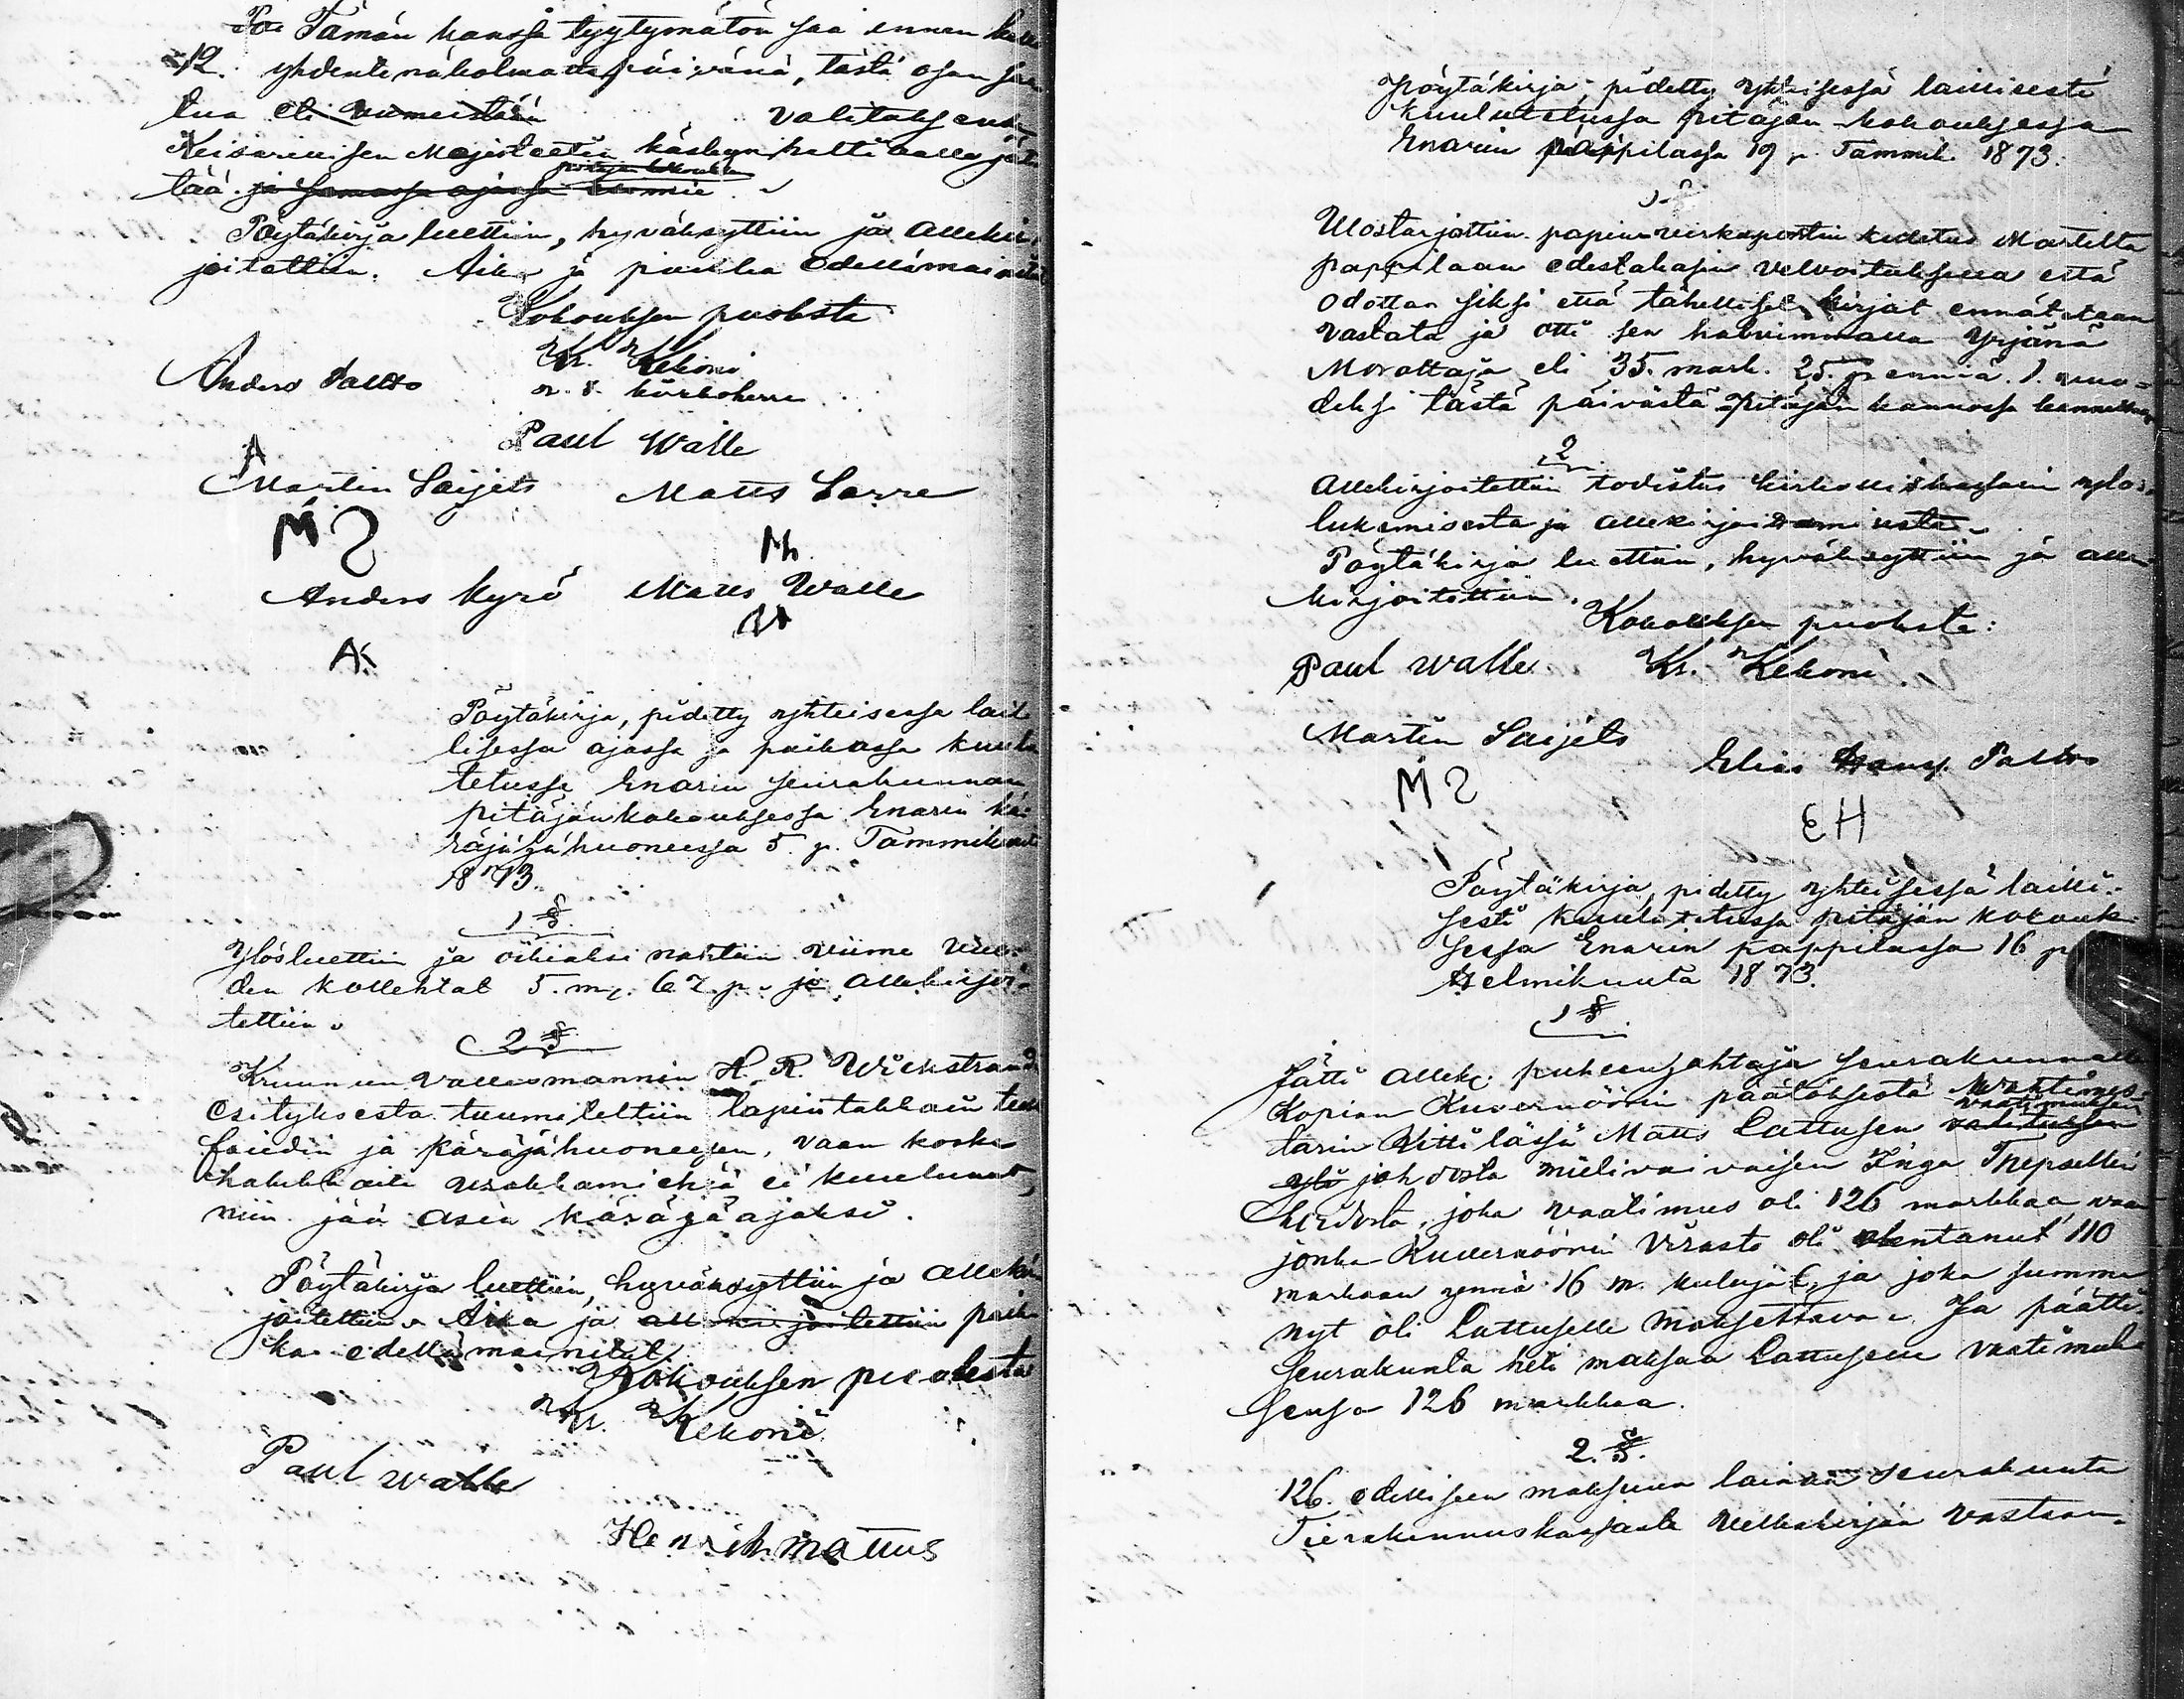 Tämän kanssa tyytymätön saa ennen kello
12. yhdentenäkolmatta päivänä, tästä osan saa
tua eli valitaksensa
Keisarillisen Majesteetin käskynhaltiaalle jättää
tää. ja samassa ajassa
Pöytäkirja luettiin, hyväksyttiin ja allekir
joitettiin. Aika ja paikka edellämainitut
Kokouksen puolesta
Kr. Kekoni
v. t. kirkkoherra
Anders Paltto
A
Paul Walle
Martin Saijets Matts Sarre
M S M.
Anders Kyrö Matts Walle
AK
Pöytäkirja, pidetty yhteisessä lail
lisessa ajassa ja paikassa kuulu
tetussa Enarin seurakunnan
pitäjänkokouksessa Enarin kä
räjähuoneessa 5. p. Tammikuuta
1873.
1 §.
Ylösluettiin ja oikiaksi nähtiin viime vuo
den kollehtat 5. m. 67. p. ja allekirjoi
tettiin.
2 §
Kruunun vallesmannin H. R. Wickstrand
esityksestä tuumiteltiin lapintulkkain
ja käräjähuoneesen, vaan koska
urakkamiehiä ei kuulunut,
niin jää asia käräjäajaksi.
Pöytäkirja luettiin, hyväksyttiin ja allekir
joitettiin. Aika ja allekirjoitettiin paik
ka edellämainitut.
Kokouksen puolesta
Kr. Kekoni
Paul Walle
Henrik Mattus
Pöytäkirja, pidetty yhteisessä laillisesti
kuulutetussa pitäjän kokouksessa
Enarin pappilassa 19 p. Tammik. 1873.
1 §
Ulostarjottiin papin kuletus Martilta
pappilaan edestakasin velvoituksella että
odottaa siksi että tähelliset kirjat ennätetään
vastata ja otti sen halvimmalla Yrjänä
Morottaja eli 35. mark. 25. penniä. 1. vuo-
deksi tästä päivästä pitäjän
2
Allekirjoitettiin todistus ylös
lukemisesta ja allekirjoittamisesta.
Pöytäkirja luettiin, hyväksyttiin ja alle
kirjoitettiin.
Kokouksen puolesta:
Paul Walle Kr. Kekoni.
Martin Saijets
M S
Elias Paltto
E H
Pöytäkirja, pidetty yhteisessä lailli-
sesti kuulutetussa pitäjän kokouk-
sessa Enarin pappilassa 16 p.
Helmikuuta 1873.
1 §.
Jätti allek. puheenjohtaja seurakunnalle
Kopian Kuvernöörin päätöksestä
tarin Kittilässä Matts Lattusen vaatimuksen
johdosta mielivaivaisen Inga
hoidosta, joka vaatimus oli 126 markkaa, vaan
jonka Kuvernöörin Virasto oli alentanut 110
markaan ynnä 16 m. kuluja, ja joka summa
nyt oli Lattuselle maksettava. Ja päätti
Seurakunta heti maksaa Lattuselle vaatimuk
sensa 126 markkaa.
2. §.
126. edellisen maksuun lainaa seurakunta
Tierakennuskassasta velkakirjaa vastaan.